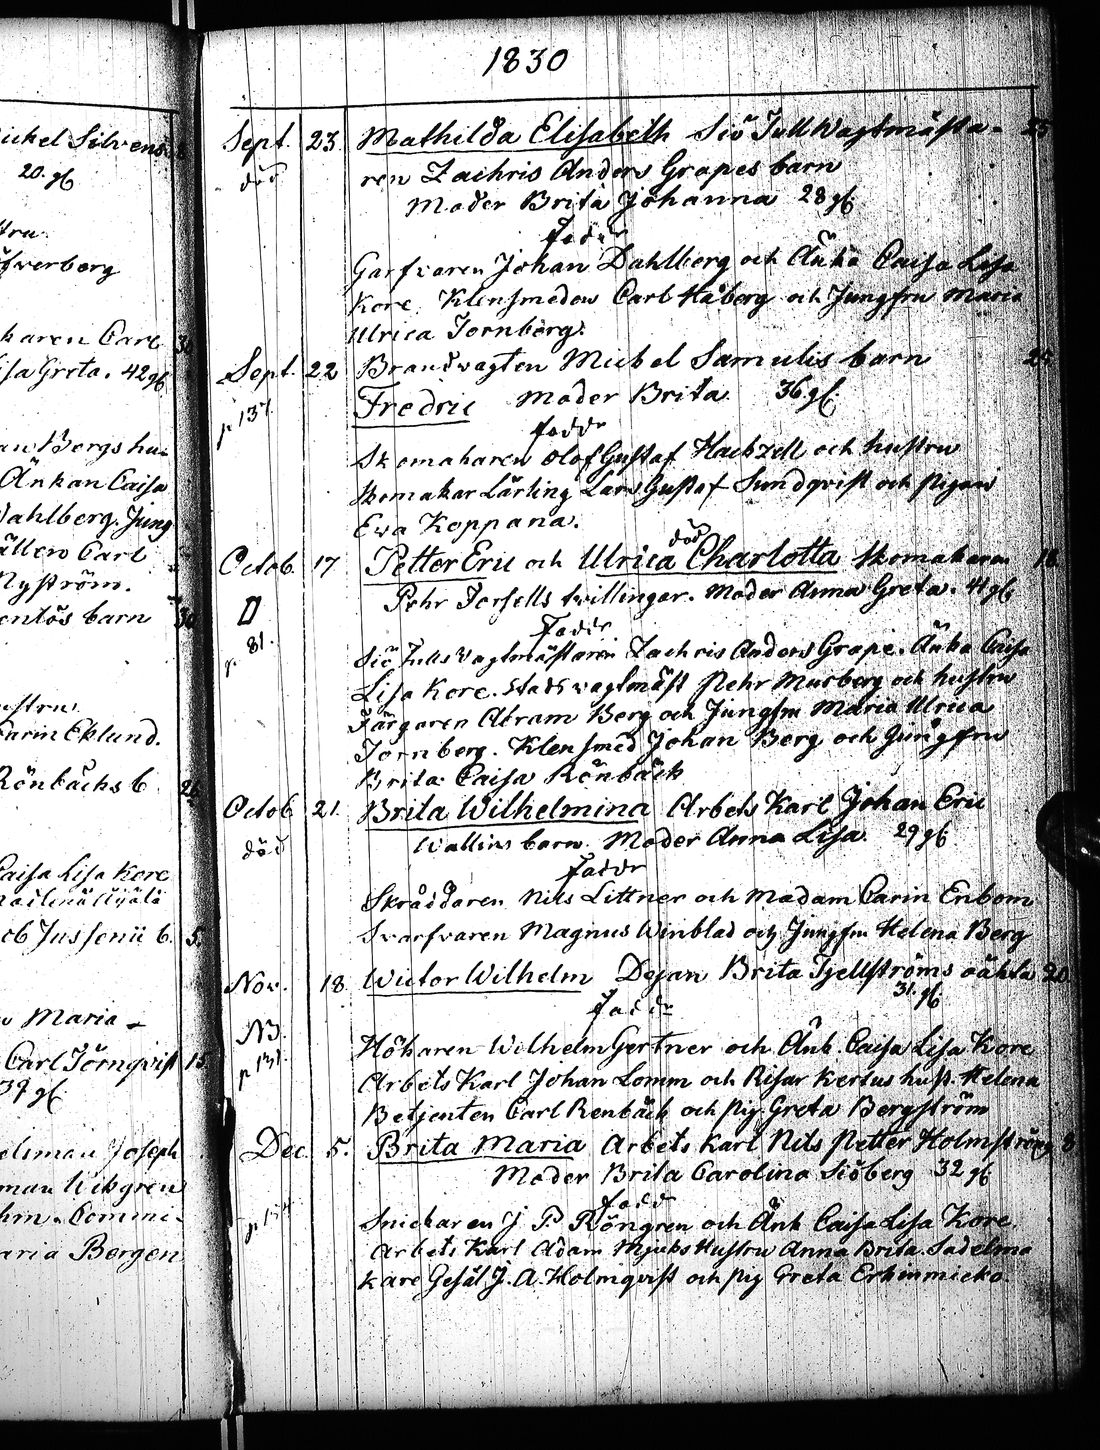 ickel Silvens
20. gl
stru
öfverberg
karen Carl 30
isa Greta. 42 gl
an Bergs hu-
Änkan Caisa
Dahlberg. Jung
ällen Carl
Nyström.
entös barn 30
ustru
Carin Eklund.
Rönbäcks b. 26
Caisa Lisa Kore
ob Jussenii b. 5.
Maria
Carl Törnqvist 15
39 gl.
elsman Joseph
man Wikgren
hm. Commi-
aria Bergen
1830
Sept. 23. Mathilda Elisabeth Siö Tull Wagtmästa- 25
död ren Zachris Anders Grapes barn
Moder Brita Johanna 28 gl.
fadder
Garfvaren Johan Dahlberg och Änka Caisa Lisa
Kore. Klensmeden Carl Håberg och Jungfru Maria
Ulrica Tornberg.
Sept. 22 Brandvagten Michel Samulis barn 25
p 137. Fredric Moder Brita 36 gl.
faddr
Skomakaren Olof Gustaf Hackzell och hustru
Skomakar Lärling Lars Gustaf Sundqvist och Pigan
Eva Koppana.
död
Octob. 17 Petter Eric och Ulrica Charlotta Skomakaren 18.
Pehr Forsells twillingar. Moder Anna Greta. 41 gl.
Faddr
p. 81. Siö Tulls Vagtmästaren Zachris Anders Grape. Änka Caisa
Lisa Kore. Stads vagtmäst Pehr Musberg och hustru
Färgaren Abram Berg och Jungfru Maria Ulrica
Tornberg. Klensmed Johan Berg och Jungfru
Brita Caisa Rönbäck
Octob 21. Brita Wilhelmina Arbets Karl Johan Eric
död Wallins barn. Moder Anna Lisa. 29 gl.
Faddr
Skräddaren Nils Littner och Madam Carin Enbom
Svarfvaren Magnus Winblad och Jungfru Helena Berg
Nov. 18. Wictor Wilhelm Dejan Brita Tjellströms oäkta 20.
31. gl.
faddr
NB.
p 131. Hökaren Wilhelm Gertner och Änk. Caisa Lisa Kore
Arbets Karl Johan Lomm och Risar Kertus hust. Helena
Betjenten Carl Renbäck och Pig. Greta Bergström
Dec. 5. Brita Maria Arbets Karl Nils Petter Holmström 8
Moder Brita Carolina Siöberg 32 gl
fadd
Snickaren J. P. Röngren och Änk Caisa Lisa Kore.
Arbets Karl Adam Mjuks Hustru Anna Brita. Sadelma
kare Gesäl J. A. Holmqvist och Pig Greta Erkinmicko.